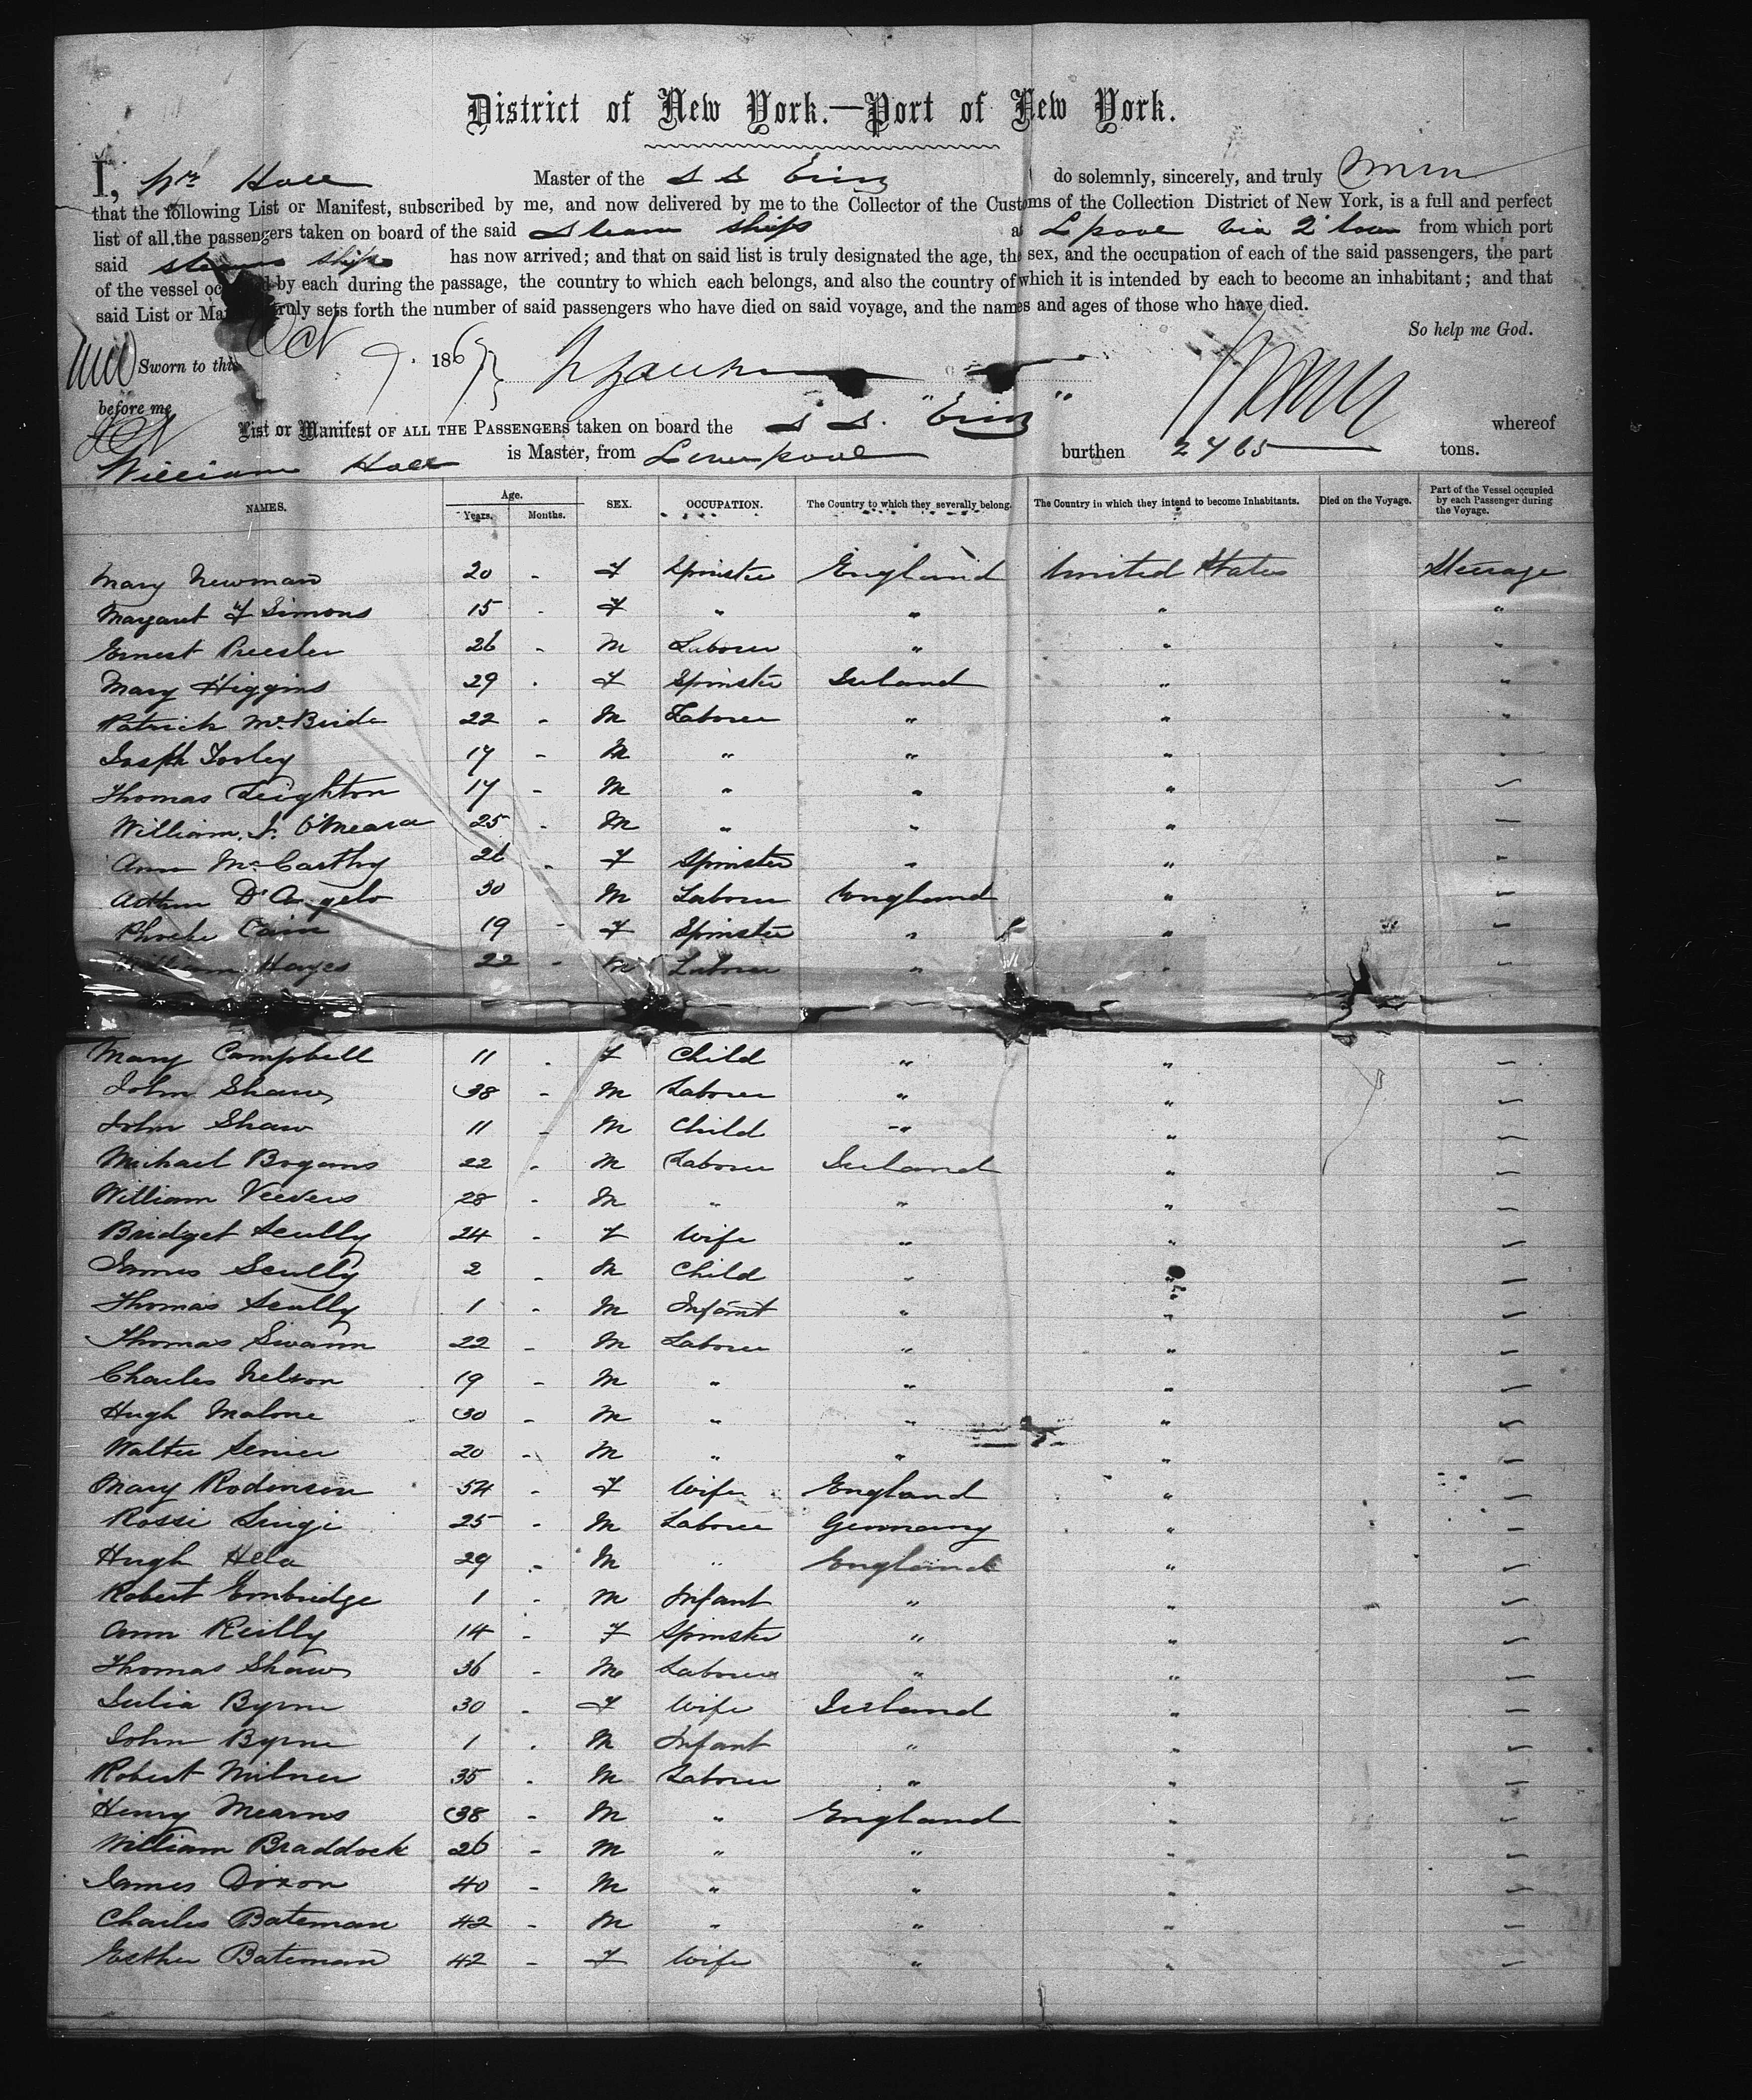 District of New York.—Port of New York.
I, Wm Hall Master of the S S Erin do solemnly, sincerely, and truly
that the following List or Manifest, subscribed by me, and now delivered by me to the Collector of the Customs of the Collection District of New York, is a full and perfect
list of all the passengers taken on board of the said Steam Ships at L'pool via Q'town from which port
said Steam Ship has now arrived; and that on said list is truly designated the age, the sex, and the occupation of each of the said passengers, the part
of the vessel occupied by each during the passage, the country to which each belongs, and also the country of which it is intended by each to become an inhabitant; and that
said List or Manifest truly sets forth the number of said passengers who have died on said voyage, and the names and ages of those who have died.
So help me God.
Sworn to this Oct 7. 186
before me
List or Manifest OF ALL THE PASSENGERS taken on board the S S. "Erin" whereof
William Hall is Master, from Liverpool burthen 2765 tons.
NAMES. Age. Years. Months. SEX. OCCUPATION. The Country to which they severally belong. The Country in which they intend to become Inhabitants. Died on the Voyage. Part of the Vessel occupied by each Passenger during the Voyage.
Mary Newman 20 - F Spinster England United States Steerage
Margaret F Simons 15 - F " " " "
Ernest Preesler 26 - M Laborer " " "
Mary Higgins 29 - F Spinster Ireland " "
Patrick McBride 22 - M Laborer " " "
Joseph Torley 17 - M " " " "
Thomas Leighton 17 - M " " " "
William J. O'Meara 25 - M " " " "
Ann McCarthy 26 - F Spinster " " "
Arthur D'Angelo 30 M Laborer England " "
Phoebe Cain 19 - F Spinster " " "
William Hayes 22 - M Laborer " " "
Mary Campbell 11 - F Child " " "
John Shaw 38 - M Laborer " " "
John Shaw 11 - M Child " " "
Michael Bogans 22 - M Laborer Ireland " "
William Veevers 28 - M " " " "
Bridget Scully 24 - F Wife " " "
James Scully 2 - M Child " " "
Thomas Scully 1 - M Infant " " "
Thomas Swann 22 - M Laborer " " "
Charles Nelson 19 - M " " " "
Hugh Malone 30 - M " " " "
Walter Senier 20 - M " " " "
Mary Rodenson 54 - F Wife England " "
Rossi Luigi 25 - M Laborer Germany " "
Hugh Hela 29 - M " England " "
Robert Embridge 1 - M Infant " " "
Ann Reilly 14 - F Spinster " " "
Thomas Shaw 36 - M Laborer " " "
Julia Byrne 30 - F Wife Ireland " "
John Byrne 1 - M Infant " " "
Robert Milner 35 - M Laborer " " "
Henry Mearns 38 - M " England " "
William Braddock 26 - M " " " "
James Dixon 40 - M " " " "
Charles Bateman 42 - M " " " "
Esther Bateman 42 - F Wife " " "